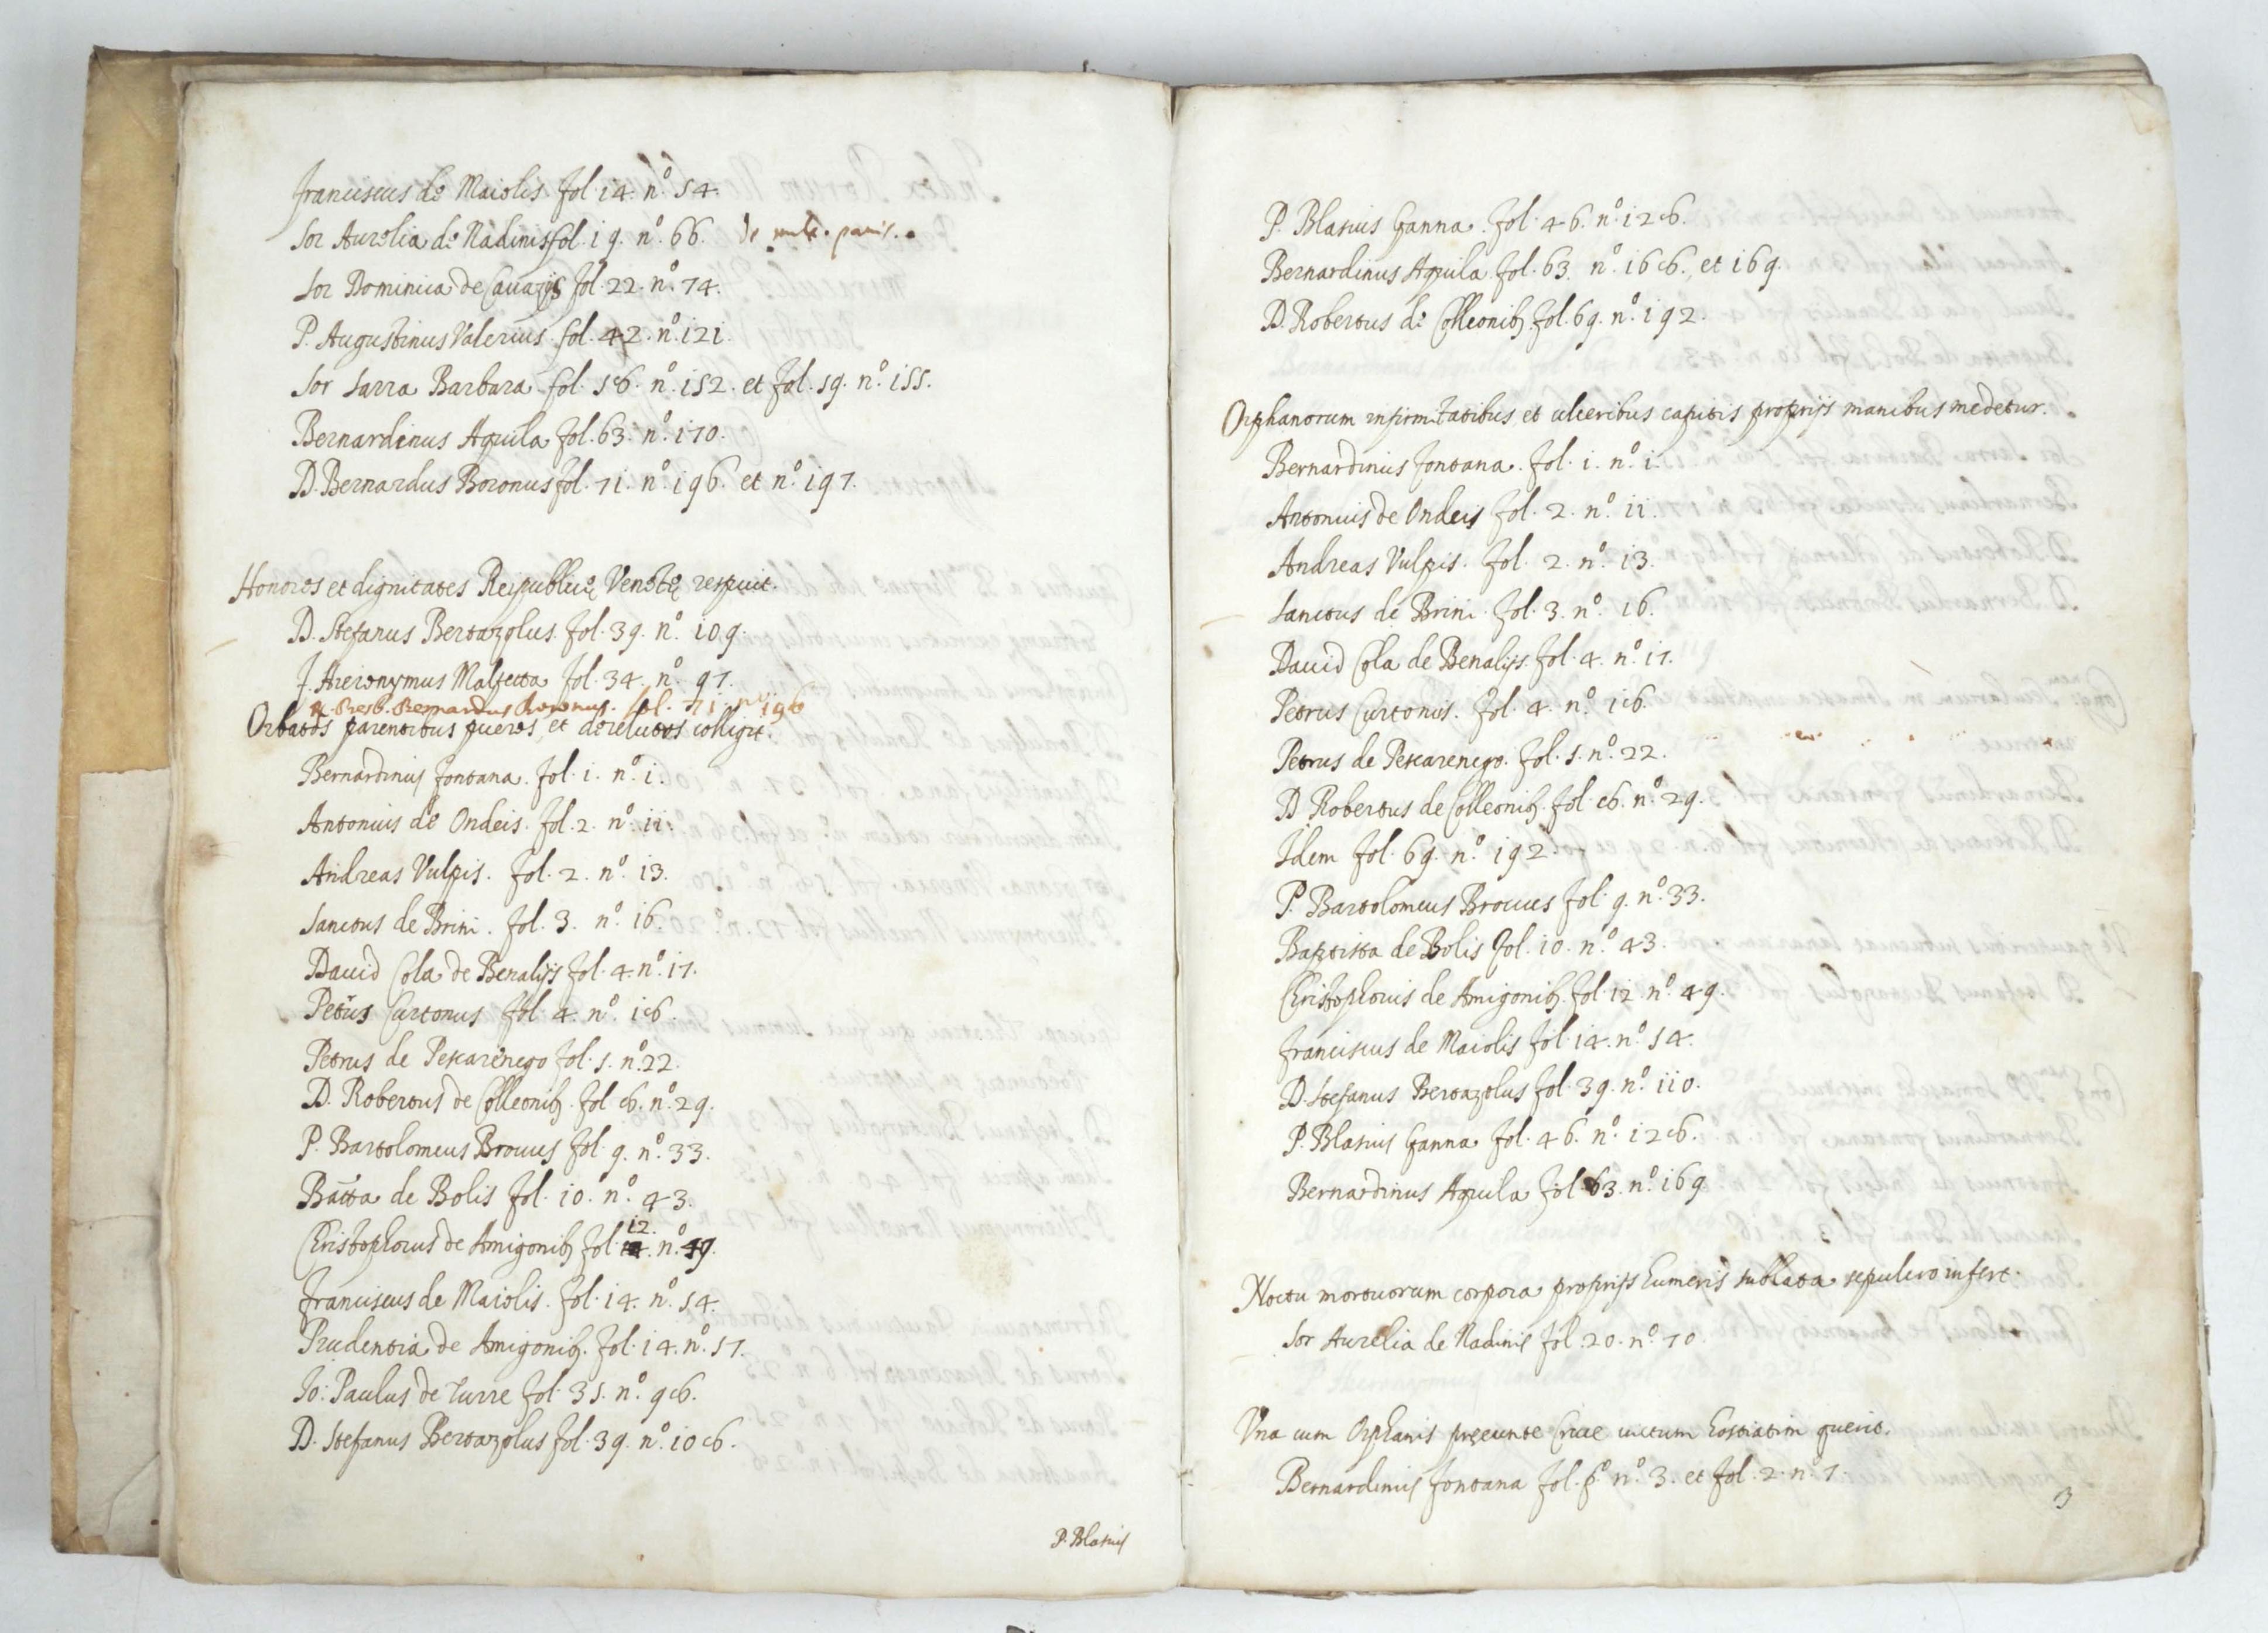 Franciscus de Maiolis. fol. 14. nº. 54.
Sor Aurelia de Nadinis fol. 19. nº. 66. de
Sor Dominica de Cauazijs fol. 22. nº. 74.
P. Augustinus Valerius. fol. 42. nº. 121.
Sor Sarra Barbara. fol. 58. nº. 152. et fol. 59. nº. 155.
Bernardinus Aquila fol. 63. nº. 170.
D. Bernardus Boronus fol. 71. nº. 196. et nº. 197.
Honores et dignitates Reipublicę Venetę respuit.
D. Stefanus Bertazolus. fol. 39. nº. 109.
F. Hieronymus Malfetta fol. 34. nº. 97.
R. Presb. Bernardus Boronus. fol. 71. nº. 196
Orbatos parentibus pueros, et derelictos colligit.
Bernardinus Fontana. fol. 1. nº. 1.
Antonius de Ondeis. fol. 2. nº. 11.
Andreas Vulpis. fol. 2. nº. 13.
Sanctus de Brini. fol. 3. nº. 16.
Dauid Cola de Benalijs fol. 4. nº. 17.
Petrus Curtonus fol. 4. nº. 18.
Petrus de Pescarenego fol. 5. nº. 22.
D. Robertus de Colleonib. fol. 8. nº. 29.
P. Bartolomeus Brocuus fol. 9. nº. 33.
Batta de Bolis fol. 10. nº. 43.
Christophorus de Amigonib. fol. 12. nº. 49.
Franciscus de Maiolis. fol. 14. nº. 54.
Prudentia de Amigonib. fol. 14. nº. 57.
Io: Paulus de Turre fol. 35. nº. 98.
D. Stefanus Bertazolus fol. 39. nº. 108.
P. Blasius
P. Blasius Ganna. fol. 46. nº. 128.
Bernardinus Aquila. fol. 63. nº. 168., et 169.
D. Robertus de Colleonib. fol. 69. nº. 192.
Orphanorum infirmitatibus, et ulceribus capitis proprijs manibus medetur.
Bernardinus Fontana. fol. 1. nº. 1.
Antonius de Ondeis fol. 2. nº. 11.
Andreas Vulpis. fol. 2. nº. 13.
Sanctus de Brini. fol. 3. nº. 16.
Dauid Cola de Benalijs. fol. 4. nº. 17.
Petrus Curtonus. fol. 4. nº. 18.
Petrus de Pescarenego. fol. 5. nº. 22.
D. Robertus de Colleonib. fol. 8. nº. 29.
Idem fol. 69. nº. 192.
P. Bartolomeus Brocuus fol. 9. nº. 33.
Baptista de Bolis fol. 10. nº. 43.
Christophorus de Amigonib. fol. 12. nº. 49.
Franciscus de Maiolis fol. 14. nº. 54.
D. Stefanus Bertazolus fol. 39. nº. 110.
P. Blasius Ganna fol. 46. nº. 128.
Bernardinus Aquila fol. 63. nº. 169
Noctu mortuorum corpora proprijs humeris sublata sepulcro infert.
Sor Aurelia de Nadinis fol. 20. nº. 70.
Vna cum Orphanis pręeunte Cruce uictum hostiatim querit.
Bernardinus Fontana fol. pº. nº. 3. et fol. 2. n. 7.
3